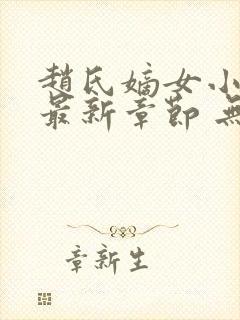 趙氏嫡女小
最新章節 無
章新生